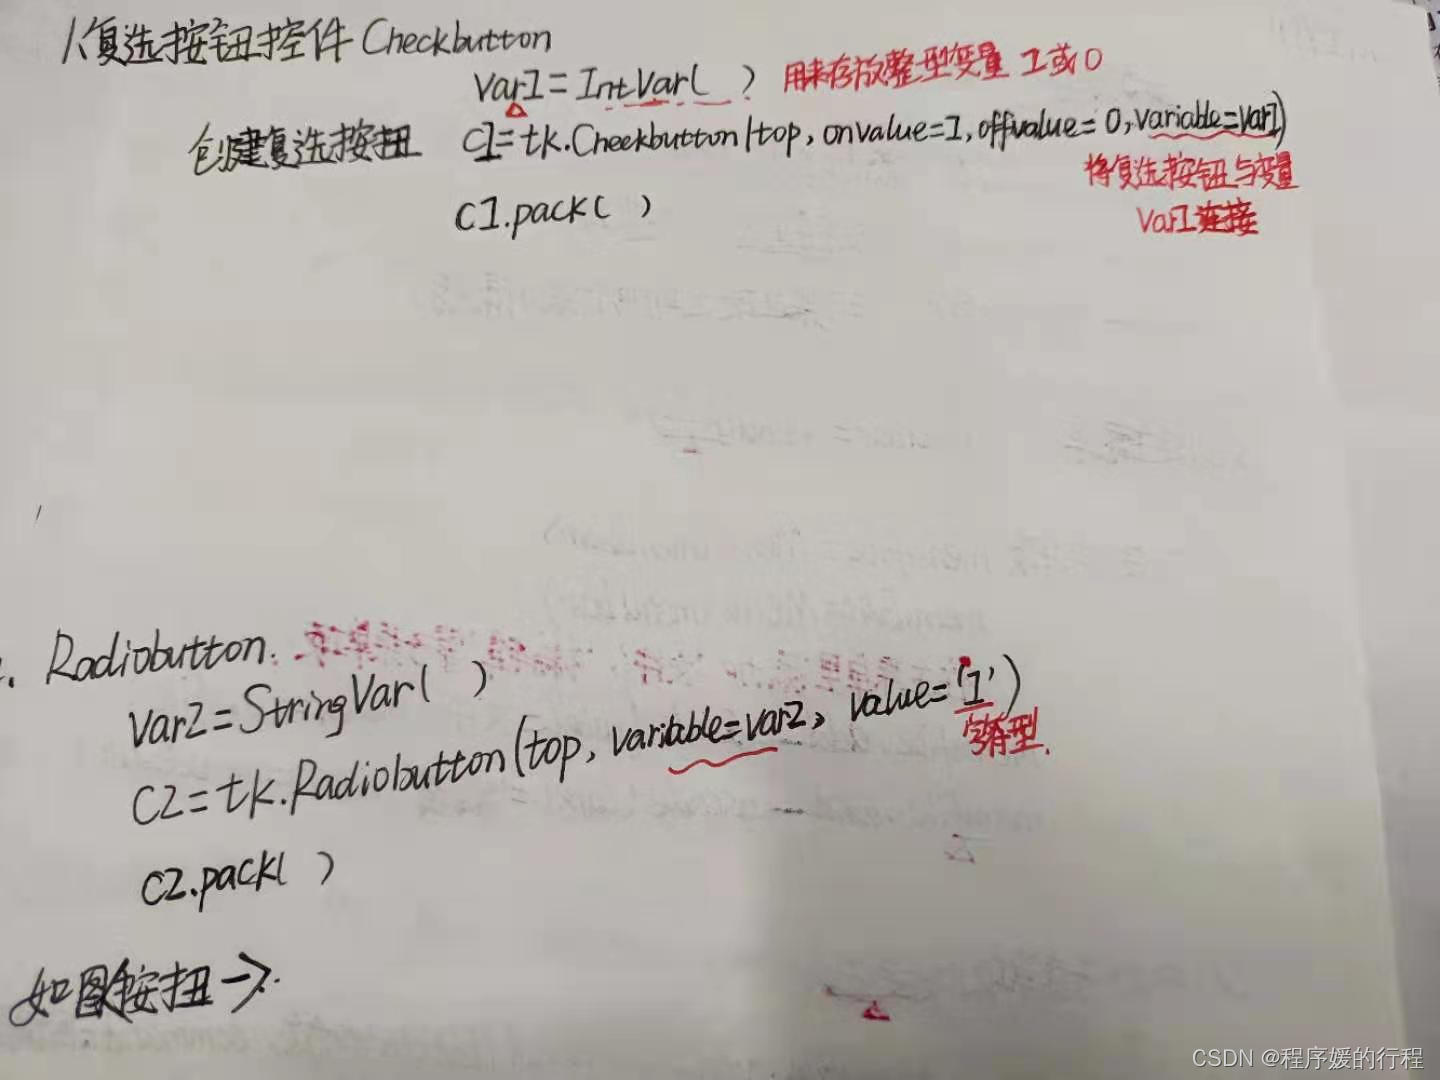 1.复选按钮控件 Checkbutton
var1=IntVar( ) 用来存放整型变量 1或0
创建复选按扭 c1=tk.Checkbutton(top, onvalue=1, offvalue=0, variable=var1)
将复选按钮与变量
var1连接
c1.pack( )
. Radiobutton.
var2=StringVar( )
c2=tk.Radiobutton(top, variable=var2, value='1')
字符型.
c2.pack( )
如图按扭→.
CSDN @程序媛的行程